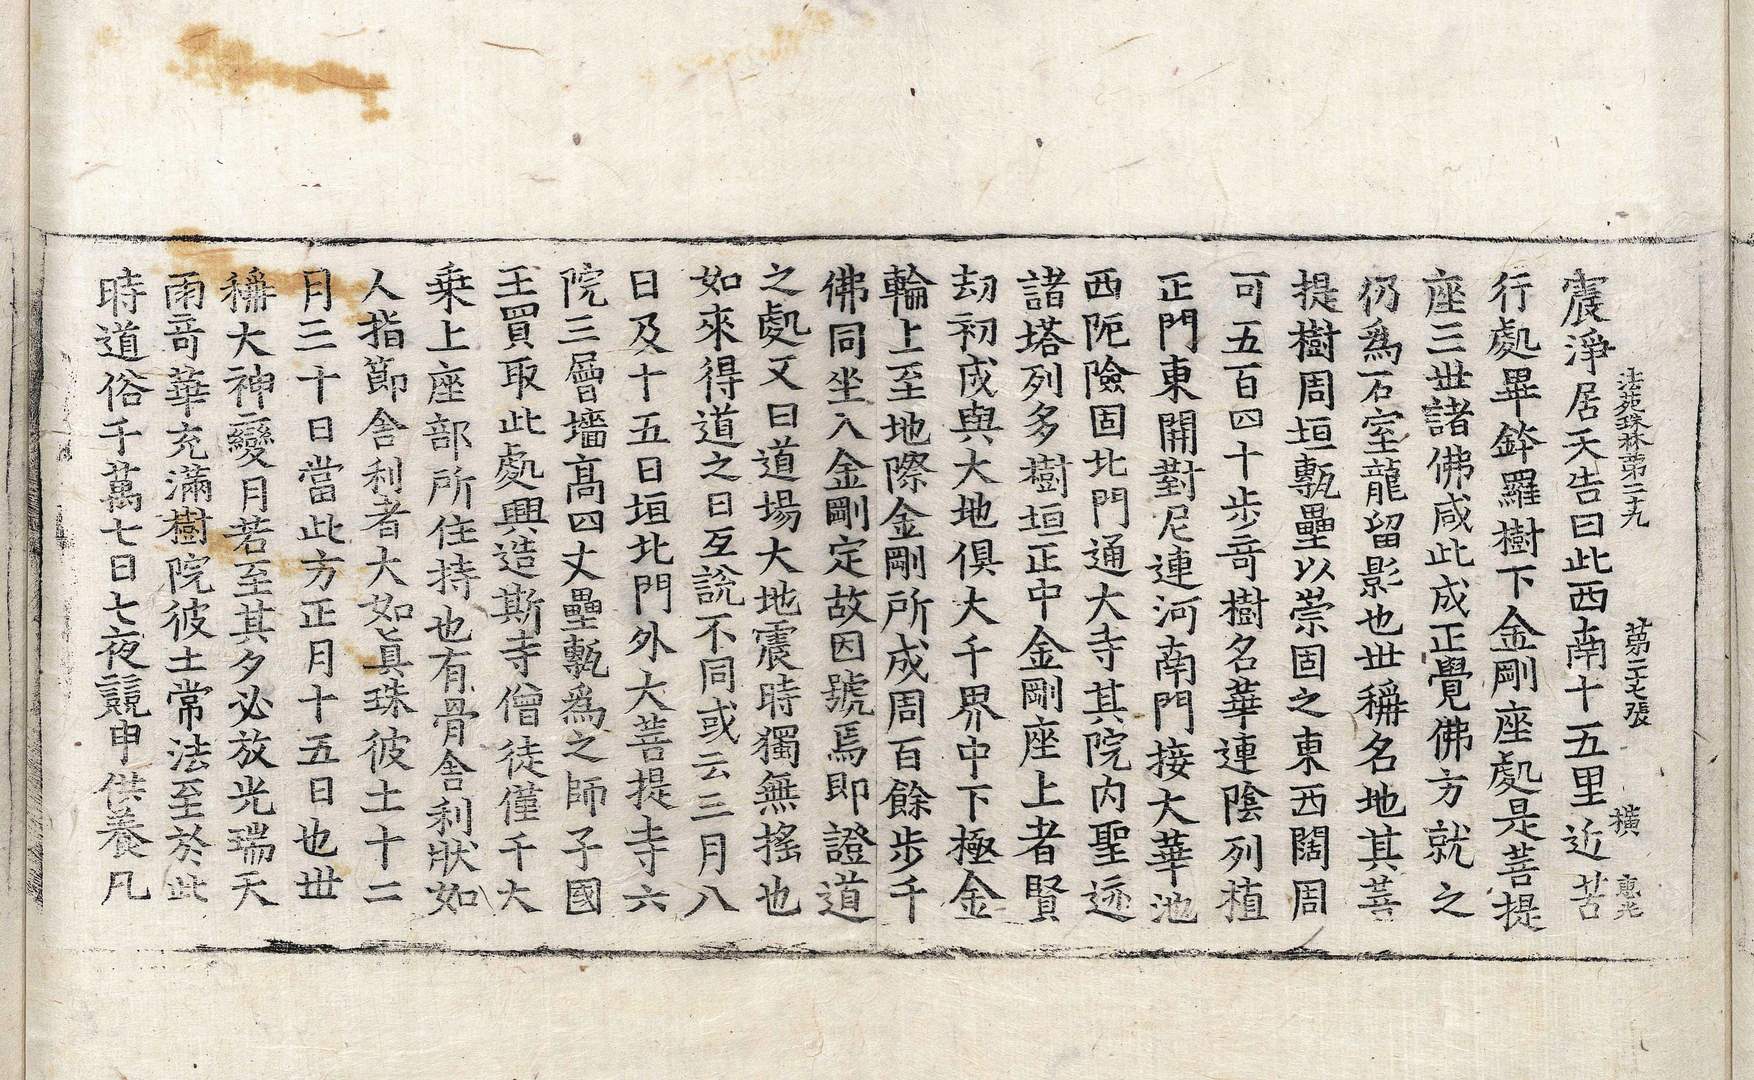 法苑珠林第二九 第二十七張 橫 惠光
震淨居天告曰此西南十五里近苦
行處畢鉢羅樹下金剛座處是菩提
座三世諸佛咸此成正覺佛方就之
仍爲石室龍留影也世稱名地其菩
提樹周垣甎壘以崇固之東西闊周
可五百四十步奇樹名華連陰列植
正門東開對尼連河南門接大華池
西阨險固北門通大寺其院內聖迹
諸塔列多樹垣正中金剛座上者賢
劫初成與大地俱大千界中下極金
輪上至地際金剛所成周百餘步千
佛同坐入金剛定故因號焉即證道
之處又曰道場大地震時獨無搖也
如來得道之日互說不同或云三月八
日及十五日垣北門外大菩提寺六
院三層墻高四丈壘甎爲之師子國
王買取此處興造斯寺僧徒僅千大
乘上座部所住持也有骨舍利狀如
人指節舍利者大如眞珠彼土十二
月三十日當此方正月十五日也世
稱大神變月若至其夕必放光瑞天
雨奇華充滿樹院彼土常法至於此
時道俗千萬七日七夜競申供養凡